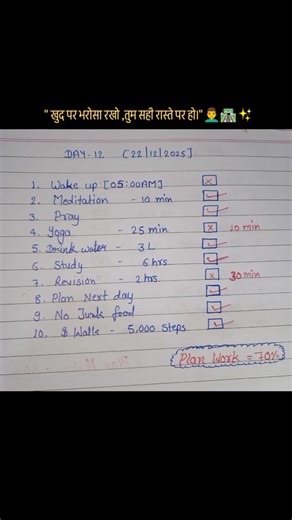 " खुद पर भरोसा रखो ,तुम सही रास्ते पर हो।" 🙎‍♂️🛣️✨
DAY-12 [22/12/2025]
1. Wake up [05:00AM] ☒
2. Meditation - 10 min ☑
3. Pray ☑
4. Yoga - 25 min ☒ 10 min
5. Drink water - 3L ☑
6. Study - 6 hrs ☑
7. Revision - 2 hrs ☒ 30 min
8. Plan Next day ☑
9. No Junk food ☑
10. Walk - 5,000 Steps ☑
Plan Work = 70%